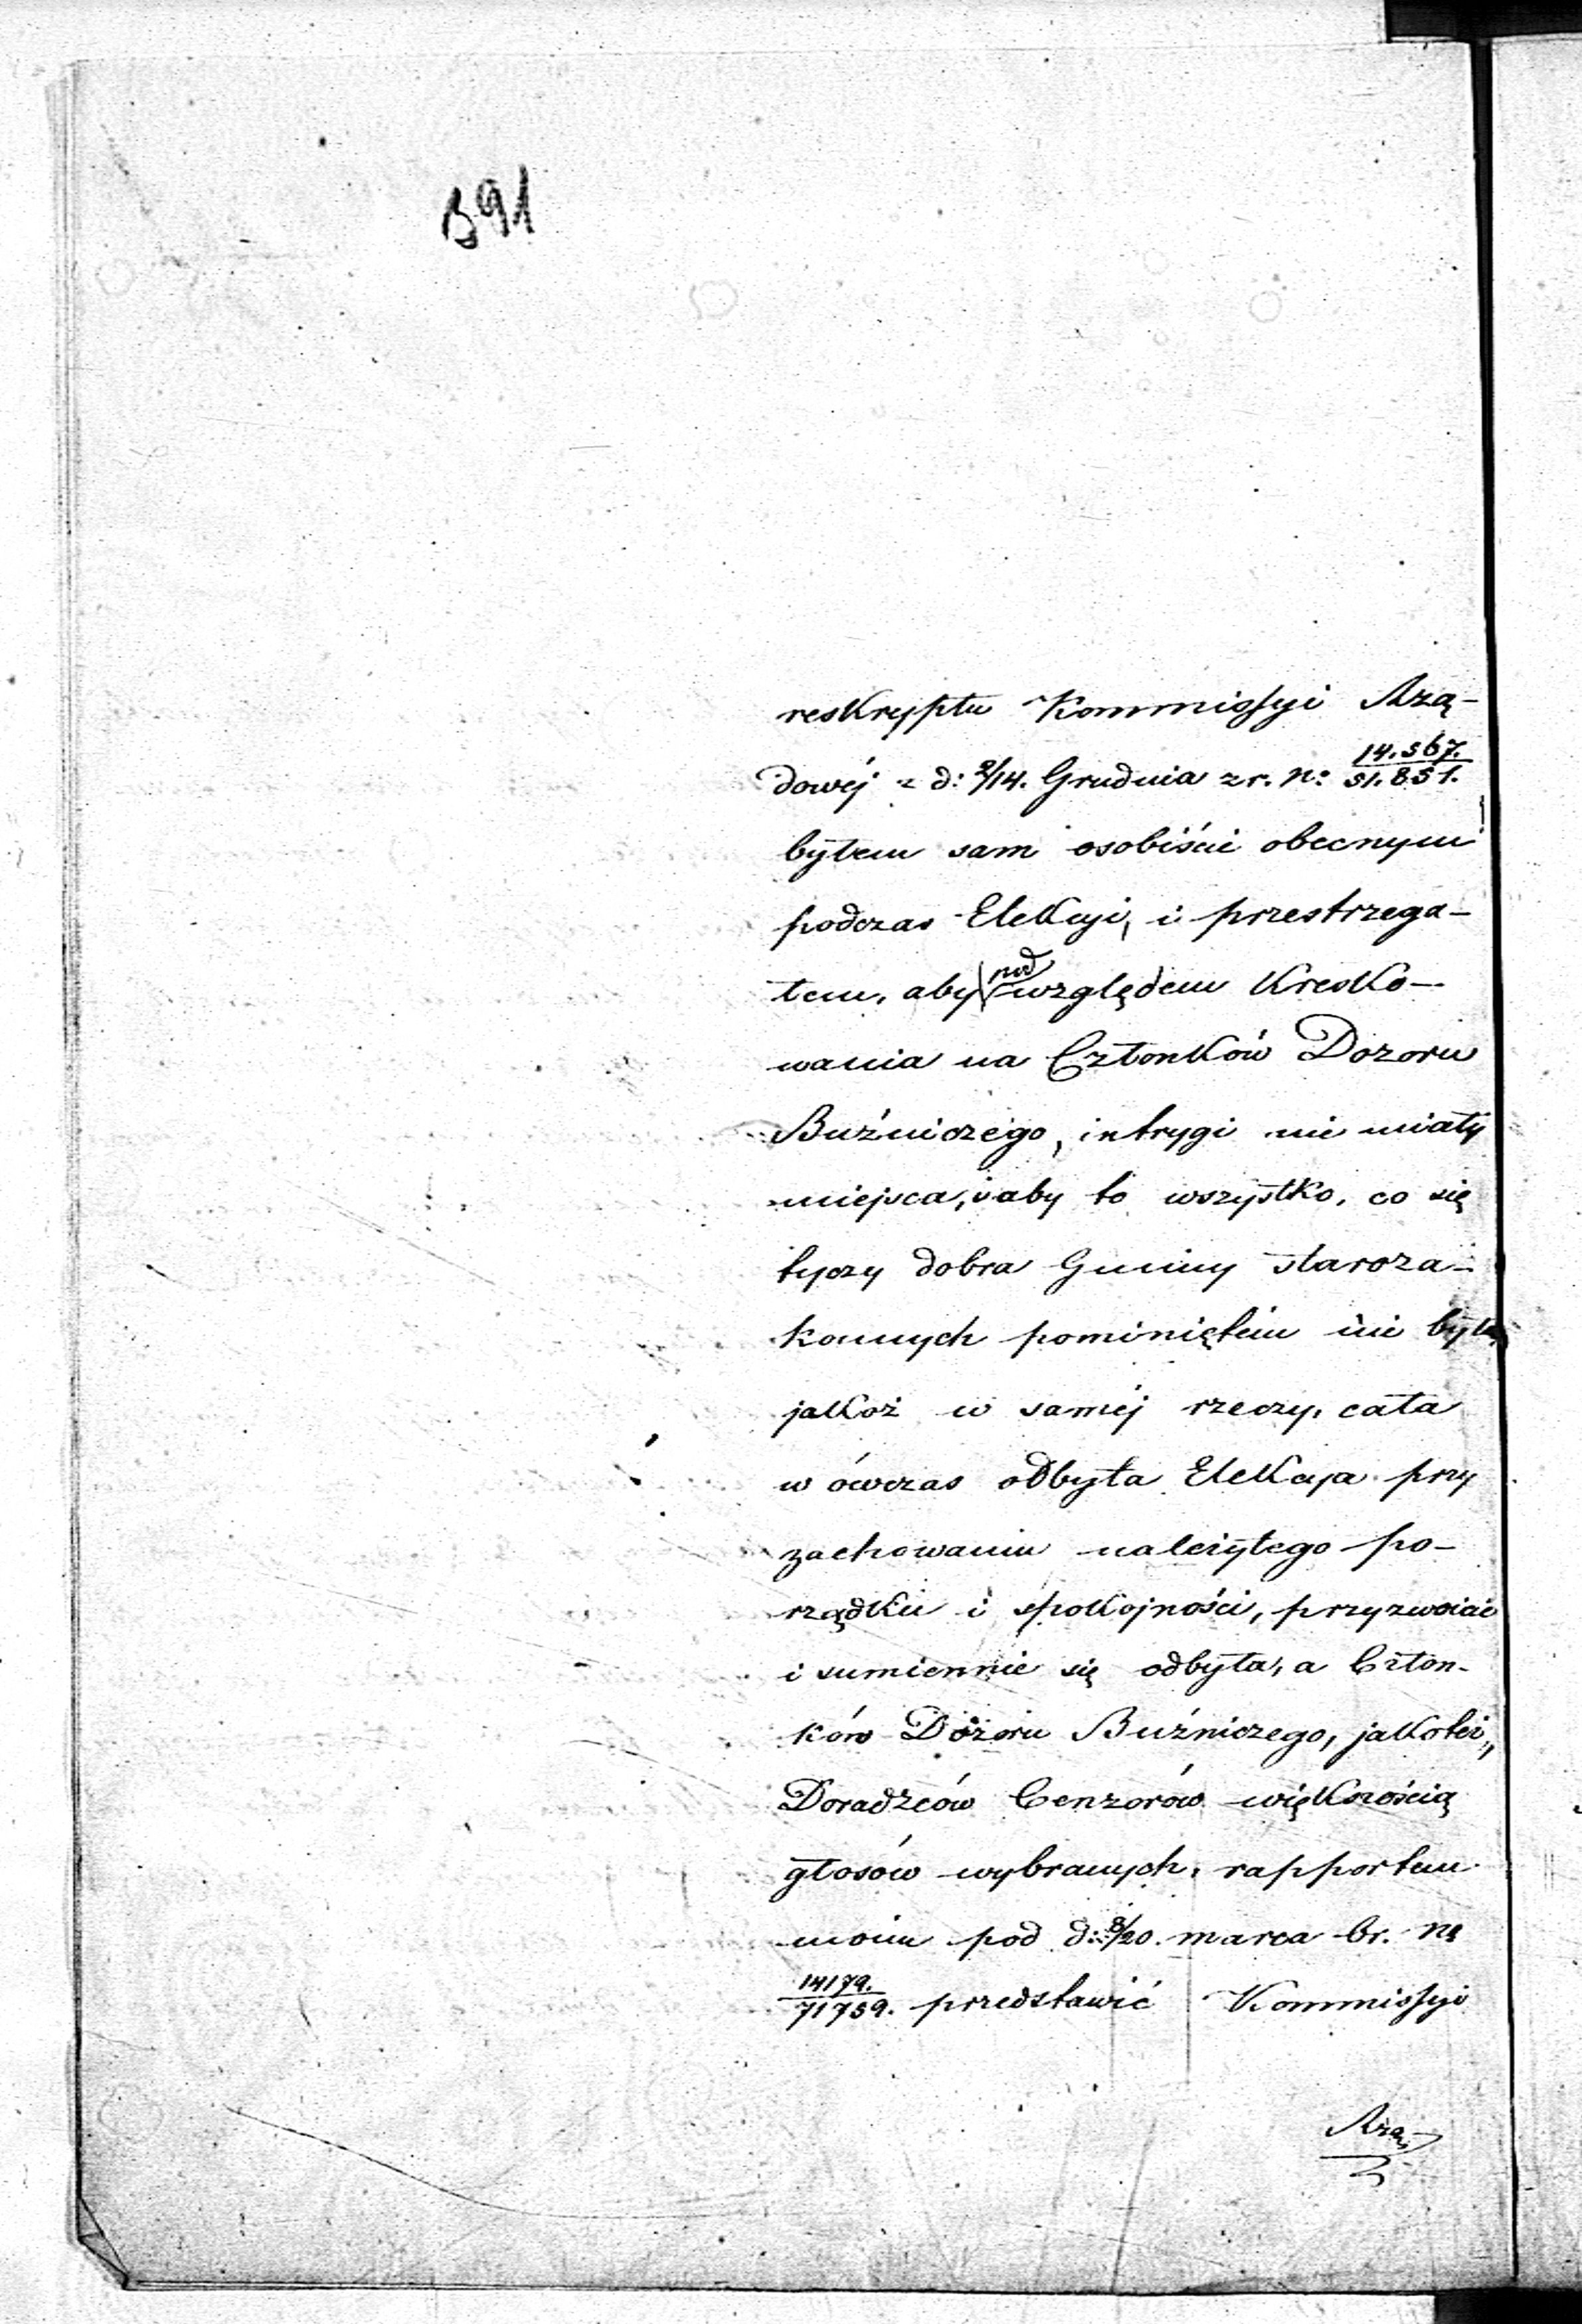 391
reskryptu Kommissyi Rzą-
dowéj z d: 2/14. Grudnia z r. N: 14.567./51.851.
byłem sam osobiście obecnym
podczas Elekcyi, i przestrzega-
łem, aby pod względem Kresko-
wania na Członków Dozoru
Bużniczego, intrygi nie miały
miejsca, i aby to wszystko, co się
tyczy dobra Gminy staroza-
konnych pominiętem nie było
jakoż w saméj rzeczy, cała
w ówczas odbyta Elekcya przy
zachowaniu należytego po-
rządku i spokojności, przyzwoicie
i sumiennie się odbyła, a Człon-
ków Dozoru Bużniczego, jakoteż,
Doradzców Cenzorów większością
głosów wybranych, rapportem
moim pod d: 8/20. marca br. No
14179./71759. przedstawić Kommissyi
Rzą-